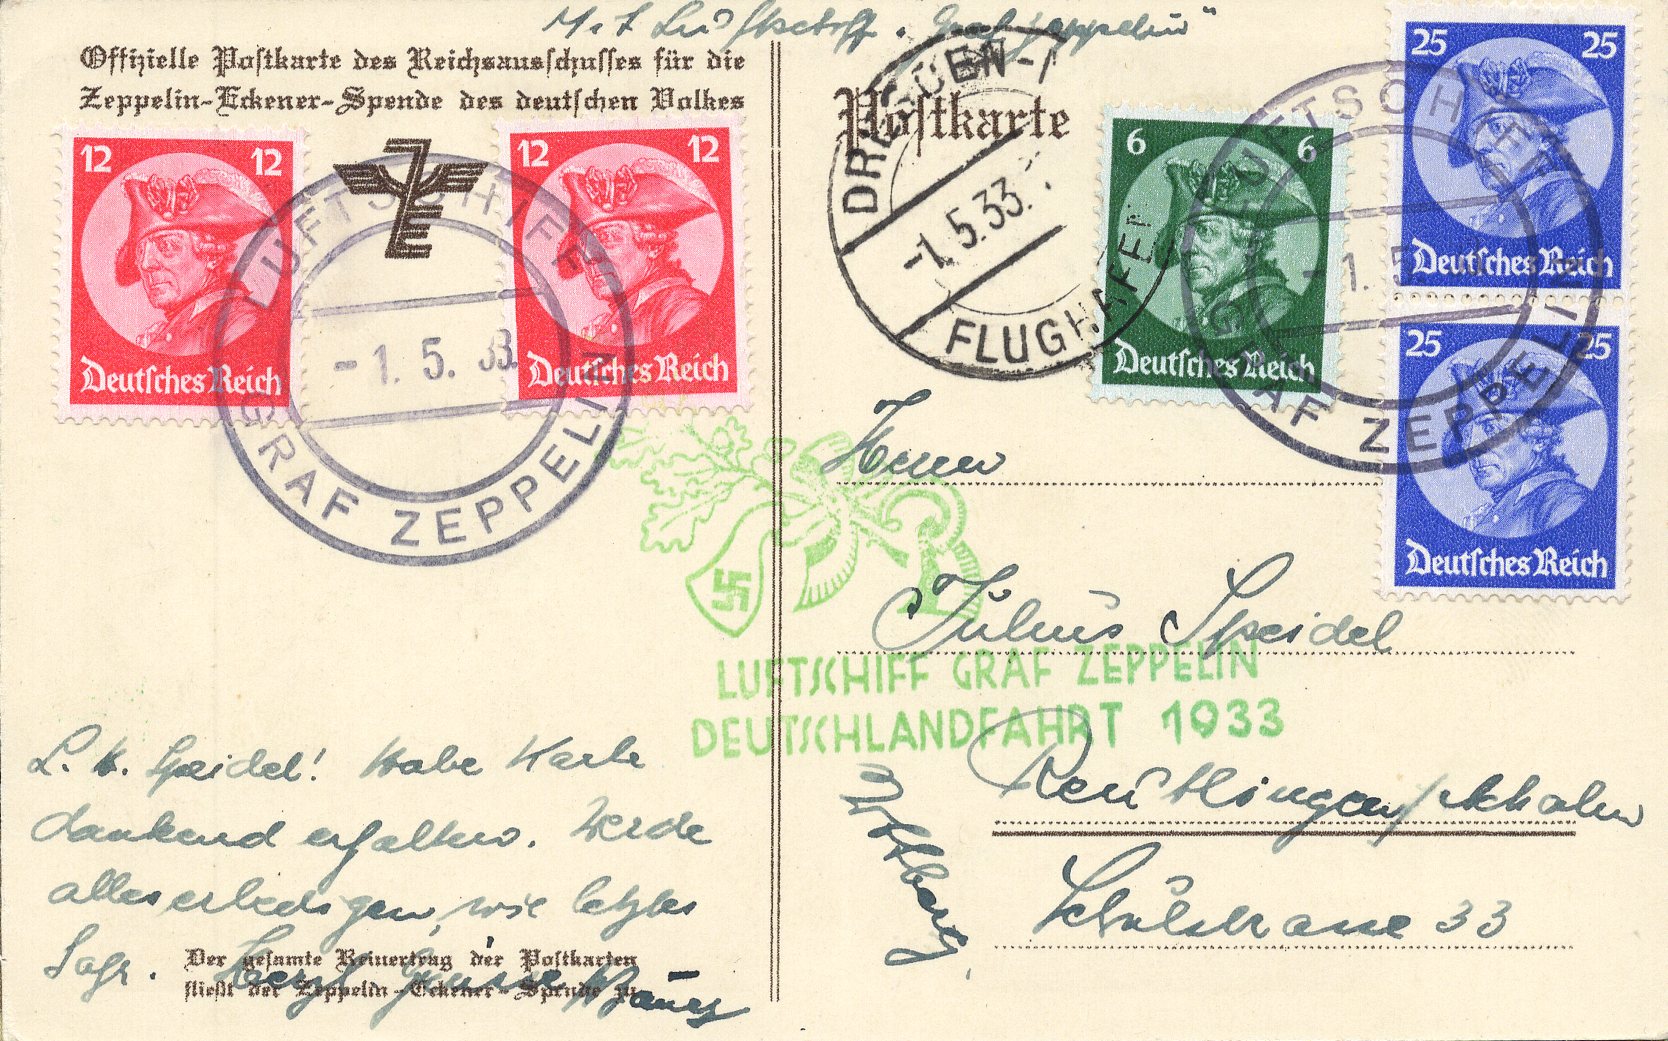 Mit Luftschiff "Graf Zeppelin"
Offizielle Postkarte des Reichsausschusses für die
Zeppelin-Eckener-Spende des deutschen Volkes
Postkarte
12 12
Deutsches Reich
12 12
Deutsches Reich
LUFTSCHIFF
-1. 5. 33.
GRAF ZEPPELIN
DRESDEN-
-1.5.33.
FLUGHAFEN
6 6
Deutsches Reich
25 25
Deutsches Reich
25 25
Deutsches Reich
LUFTSCHIFF
-1. 5.
GRAF ZEPPELIN
Herrn
Julius Speidel
LUFTSCHIFF GRAF ZEPPELIN
DEUTSCHLANDFAHRT 1933
Reutlingen/Achalm
Schulstrasse 33
L. H. Speidel! Habe Karte
dankend erhalten. Werde
alles erledigen, wie letztes
Jahr.
Der gesamte Reinertrag der Postkarten
fließt der Zeppelin-Eckener-Spende zu